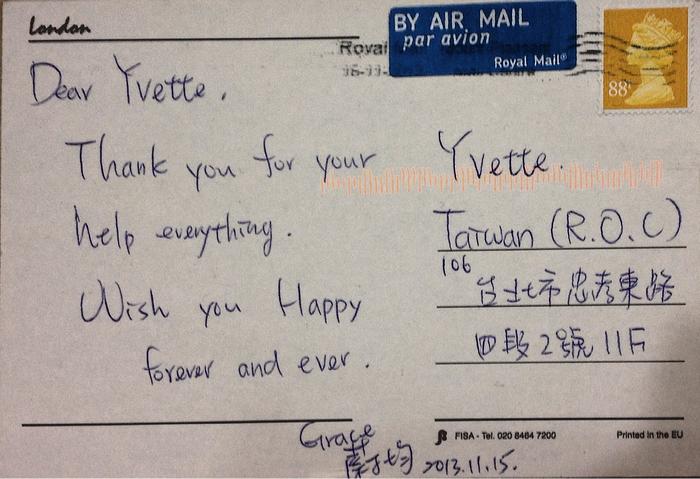 London
BY AIR MAIL
par avion
Royal Mail®
Royal
88
Dear Yvette.
Thank you for your
help everything.
Wish you Happy
forever and ever.
Grace
2013.11.15.
Yvette.
Taiwan (R.O.C)
106
台北市忠孝東路
四段2號11F
FISA - Tel. 020 8464 7200
Printed in the EU